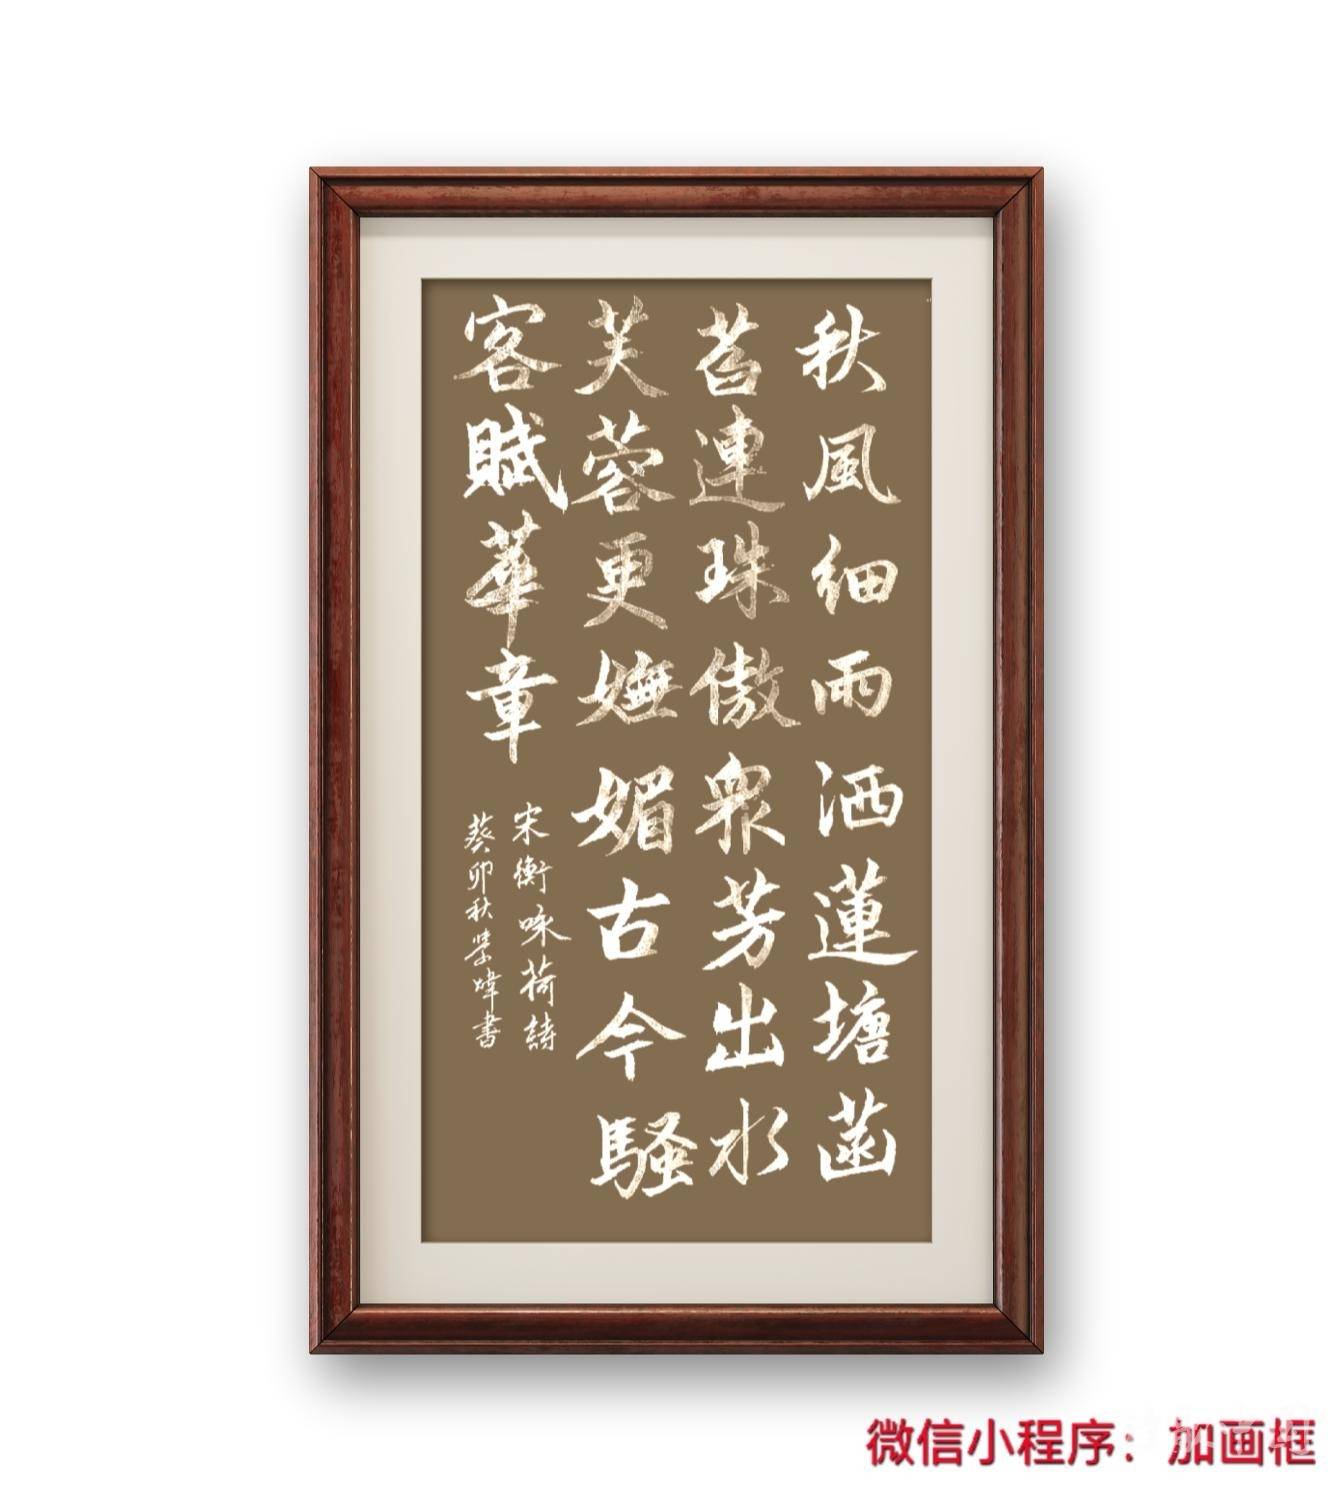 秋風細雨洒蓮塘菡
萏連珠傲眾芳出水
芙蓉更嫵媚古今騷
客賦華章
宋衡咏荷詩
癸卯秋榮暐書
微信小程序：加画框